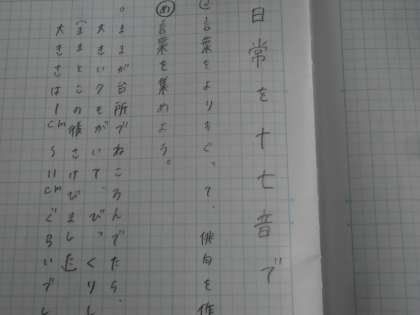 日常を十七音で
言葉をよりすぐって、俳句を作
め 言葉を集めよう。
ままが台所でねころんでたら、
大きいクモがいて、びっくりし
さけびました
大きさは1cm〜11cmぐらいで